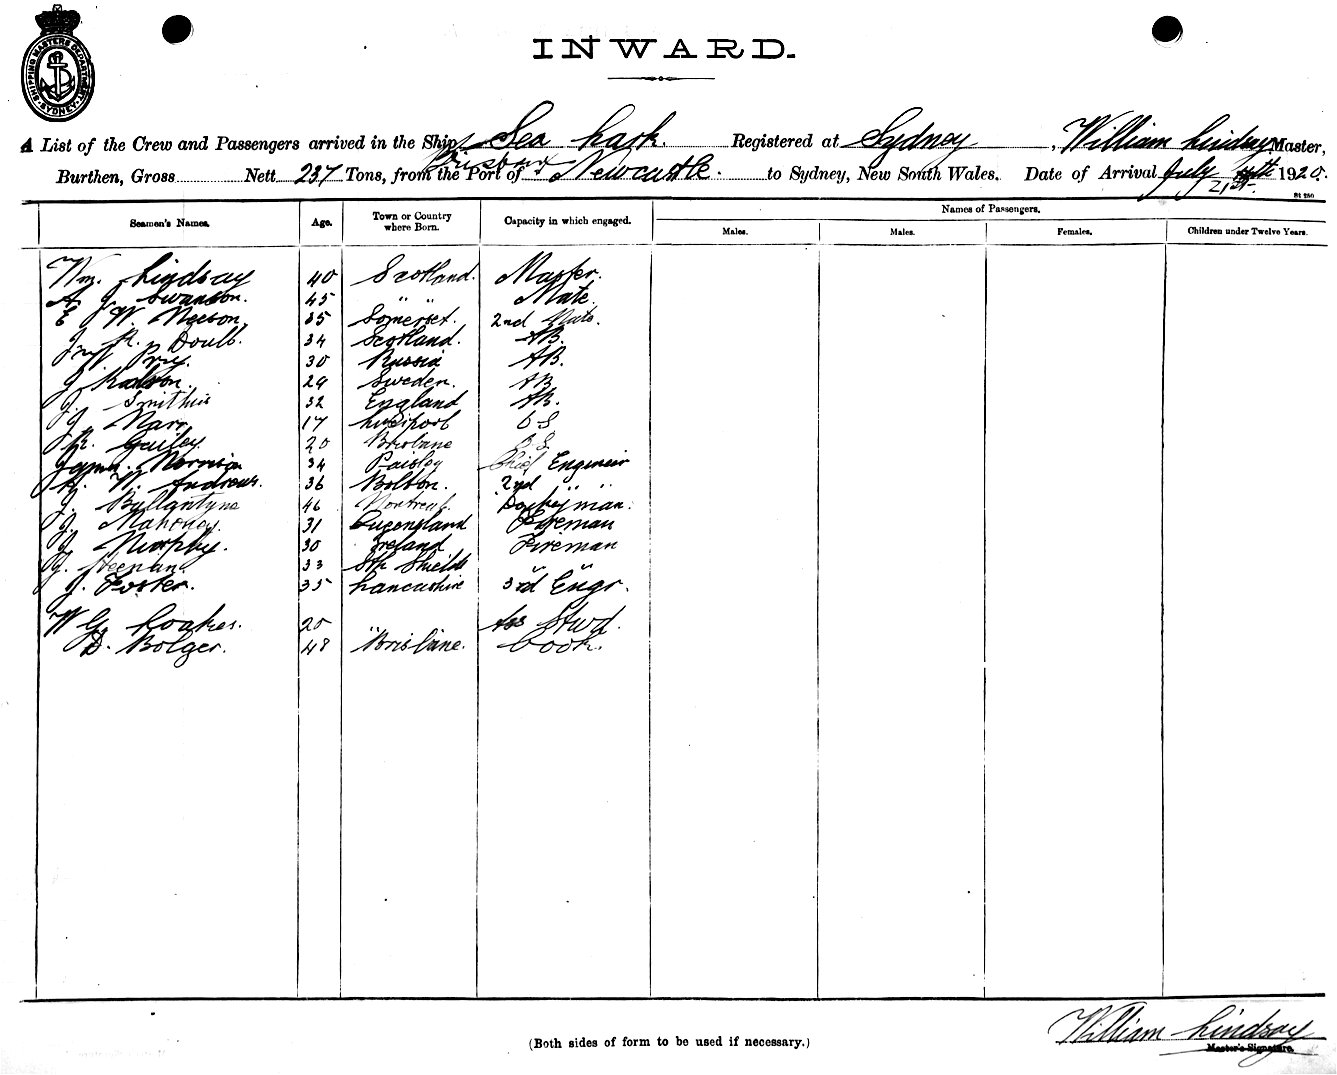 SHIPPING MASTERS DEPARTMENT SYDNEY
INWARD.
A List of the Crew and Passengers arrived in the Ship Sea Lark. Registered at Sydney, William Lindsay Master,
Brisbane &
Burthen, Gross Nett 237 Tons, from the Port of Newcastle. to Sydney, New South Wales. Date of Arrival July 1920.
21st
Seamen's Names. Age. Town or Country where Born. Capacity in which engaged. Names of Passengers.
Males. Males. Females. Children under Twelve Years.
Wm. Lindsay 40 Scotland. Master.
A J Swanson. 45 " " Mate.
E W. Neeson. 35 Somerset. 2nd Mate.
J. R. Doull. 34 Scotland. AB.
30 Russia AB.
J. 29 Sweden. AB
J. Smithies 32 England AB.
J. Marr 17 Liverpool OS
R. Gailey. 20 Brisbane O.S.
James Morrison 34 Paisley Chief Engineer
W. Andrews. 36 Bolton. 2nd " "
J. Ballantyne 46 Montreal. Donkeyman.
J. Mahoney. 31 Queensland Fireman
J. Murphy. 30 Ireland Fireman
J. Heenan. 33 Sth Shields " "
J. Foster. 35 Lancashire 3rd Engr.
W G. Loakes. 20 " " Ass Stwd.
D. Bolger. 48 Brisbane. Cook.
William Lindsay
Master's Signature.
(Both sides of form to be used if necessary.)